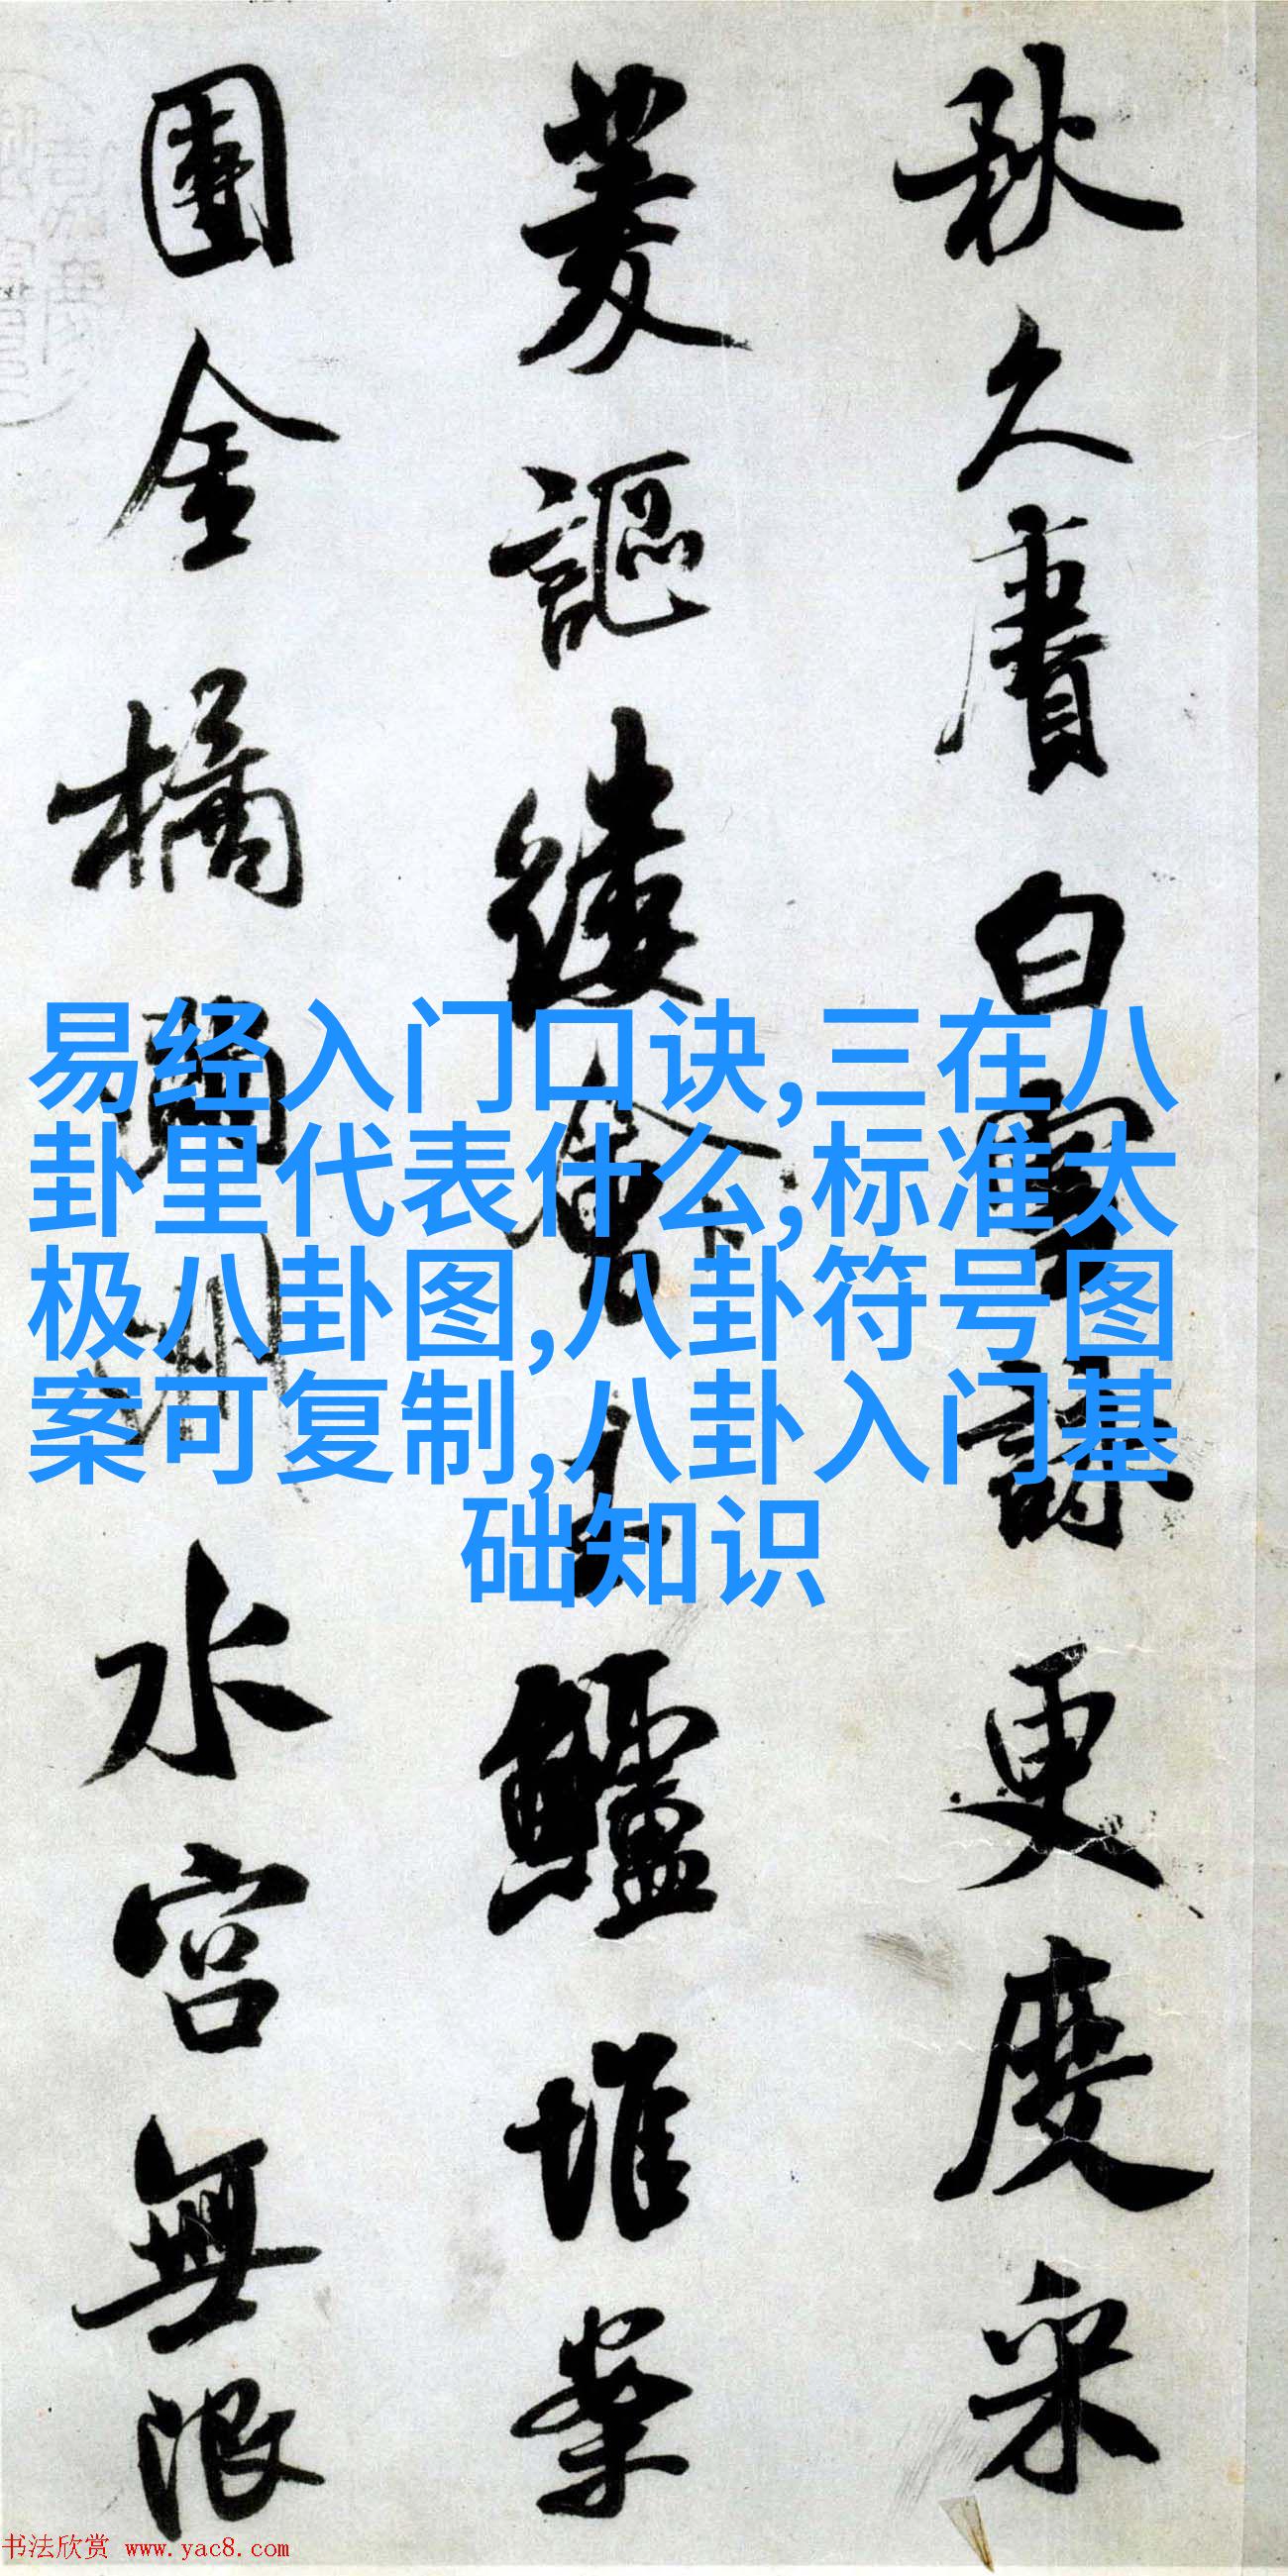 秋久賡白雪詩更度采
菱謳縷會玉鱸堆案
團金橘滿洲水宮無限
易经入门口诀,三在八
卦里代表什么,标准太
极八卦图,八卦符号图
案可复制,八卦入门基
础知识
书法欣赏 www.yac8.com